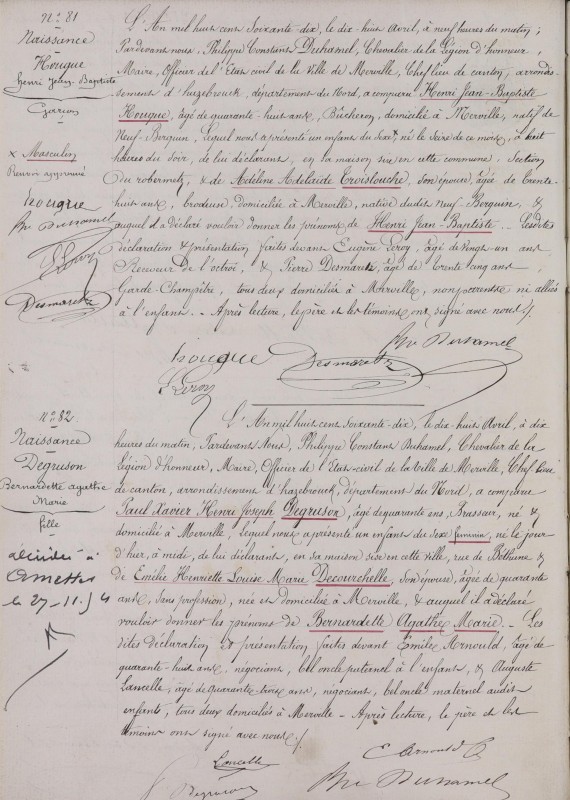 N.° 81
Naissance
Houque
Henri Jean-Baptiste
Garçon
x Masculin
Renvoi approuvé
Houque
Ph. Duhamel
E. Leroy
Desmaretz
L'An mil huit cent Soixante-dix, le dix-huit Avril, à neuf heures du matin ;
Pardevant nous, Philippe Constant Duhamel, Chevalier de la Légion d'honneur,
Maire, Officier de l'Etat civil de la Ville de Merville, Chef lieu de canton, arrondis-
sement d'hazebrouck, département du Nord, a comparu Henri Jean-Baptiste
Houque, âgé de quarante-huit ans, Bûcheron, domicilié à Merville, natif de
Neuf-Berquin, lequel nous a présenté un enfant du Sexe x né le Seize de ce mois, à huit
heures du Soir, de lui déclarant, en sa maison sise en cette commune, Section
du robermetz, & de Adéline Adelaïde Croistouche, Son épouse, âgée de trente-
huit ans, brodeuse, domiciliée à Merville, native dudit Neuf-Berquin, &
auquel il a déclaré vouloir donner les prénoms de Henri Jean-Baptiste. Lesdites
déclaration & présentation faites devant Eugène Leroy, âgé de vingt-un ans,
Receveur de l'octroi, & Pierre Desmaretz, âgé de trente cinq ans,
Garde-Champêtre, tous deux domiciliés à Merville, non parents ni alliés
à l'enfant. - Après lecture, le père et les témoins ont signé avec nous ./.
Ph. Duhamel
Houque Desmaretz
E. Leroy
N.° 82
Naissance
Degruson
Bernardette Agathe
Marie
fille
décédée à
Amettes
le 27-11-54
L'An mil huit cent Soixante-dix, le dix-huit Avril, à dix
heures du matin, Pardevant Nous, Philippe Constant Duhamel, Chevalier de la
Légion d'honneur, Maire, Officier de l'Etat-civil de la Ville de Merville, Chef lieu
de canton, arrondissement d'hazebrouck, département du Nord, a comparu
Paul Xavier Henri Joseph Degruson, âgé de quarante ans, Brasseur, né &
domicilié à Merville, lequel nous a présenté un enfant du Sexe féminin, né le jour
d'hier, à midi, de lui déclarant, en sa maison sise en cette ville, rue de Béthune &
de Emilie Henriette Louise Marie Decourchelle, Son épouse, âgée de quarante
ans, Sans profession, née et domiciliée à Merville, & auquel il a déclaré
vouloir donner les prénoms de Bernardette Agathe Marie. - Les
dites Déclaration et présentation faites devant Emile Arnould, âgé de
quarante-huit ans, négociant, bel oncle paternel à l'enfant, & Auguste
Lancelle, âgé de quarante-trois ans, négociant, bel oncle maternel audit
enfant, tous deux domiciliés à Merville - Après lecture, le père et les
témoins ont signé avec nous ./.
Lancelle E. Arnould
Degruson Ph. Duhamel